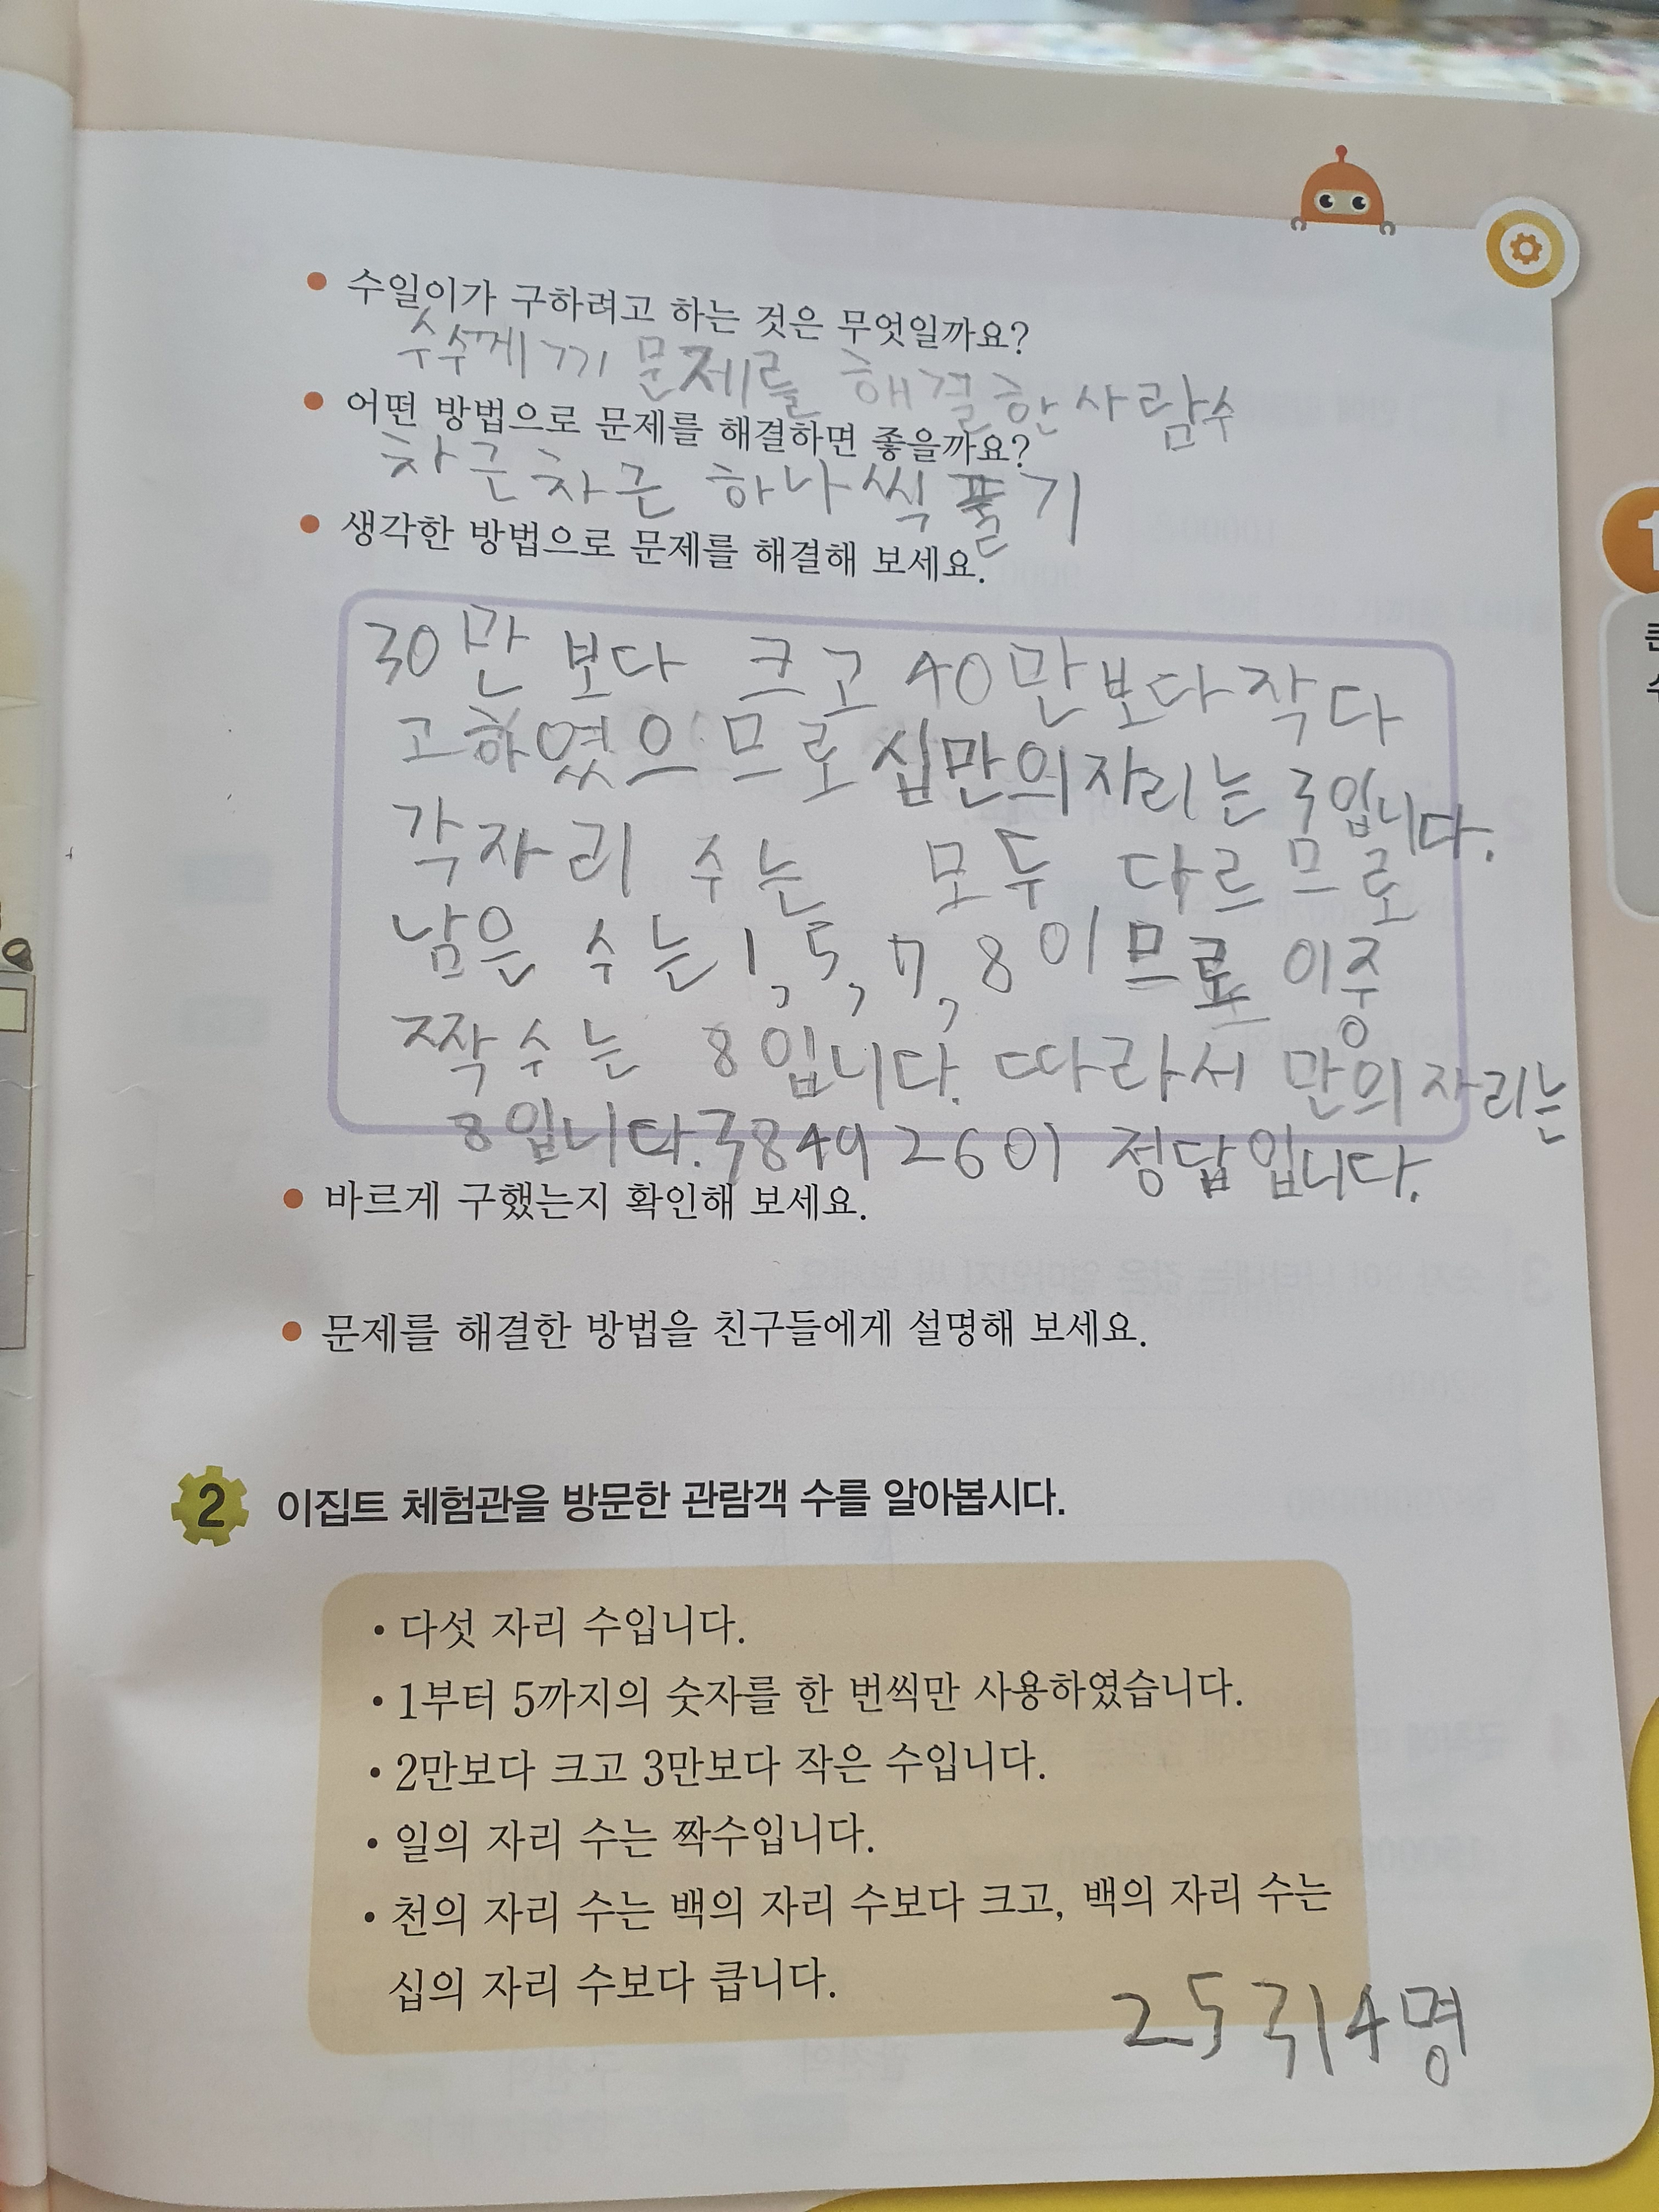 수일이가 구하려고 하는 것은 무엇일까요?
수수께끼 문제를 해결한 사람수
어떤 방법으로 문제를 해결하면 좋을까요?
차근차근 하나씩 풀기
생각한 방법으로 문제를 해결해 보세요.
30만 보다 크고 40만보다 작다
고하였으므로 십만의자리는 3입니다.
각자리 수는 모두 다르므로
남은 수는 1, 5, 7, 8이므로 이중
짝수는 8입니다. 따라서 만의자리는
8입니다. 384926이 정답입니다.
바르게 구했는지 확인해 보세요.
문제를 해결한 방법을 친구들에게 설명해 보세요.
2 이집트 체험관을 방문한 관람객 수를 알아봅시다.
• 다섯 자리 수입니다.
• 1부터 5까지의 숫자를 한 번씩만 사용하였습니다.
• 2만보다 크고 3만보다 작은 수입니다.
• 일의 자리 수는 짝수입니다.
• 천의 자리 수는 백의 자리 수보다 크고, 백의 자리 수는
십의 자리 수보다 큽니다.
25314명
1